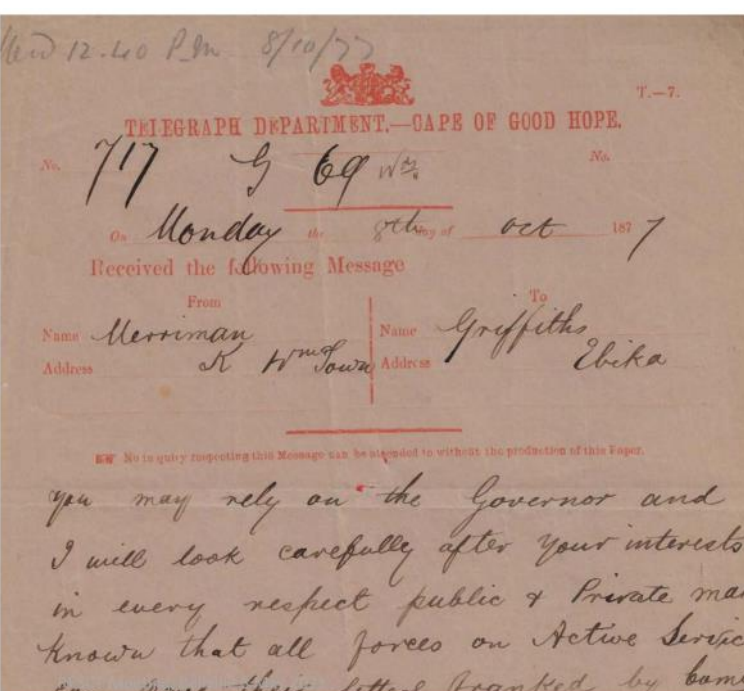 12.40 P.m 8/10/77
T.—7.
TELEGRAPH DEPARTMENT.—CAPE OF GOOD HOPE.
No. 717 G 69 Wds. No.
On Monday the 8th day of Oct 1877
Received the following Message
From To
Name Merriman Name Griffiths
Address K Wms Town Address Ibika
No inquiry respecting this Message can be attended to without the production of this Paper.
you may rely on the Governor and
I will look carefully after your interests
in every respect public & Private
Known that all forces on Active
their letters franked by